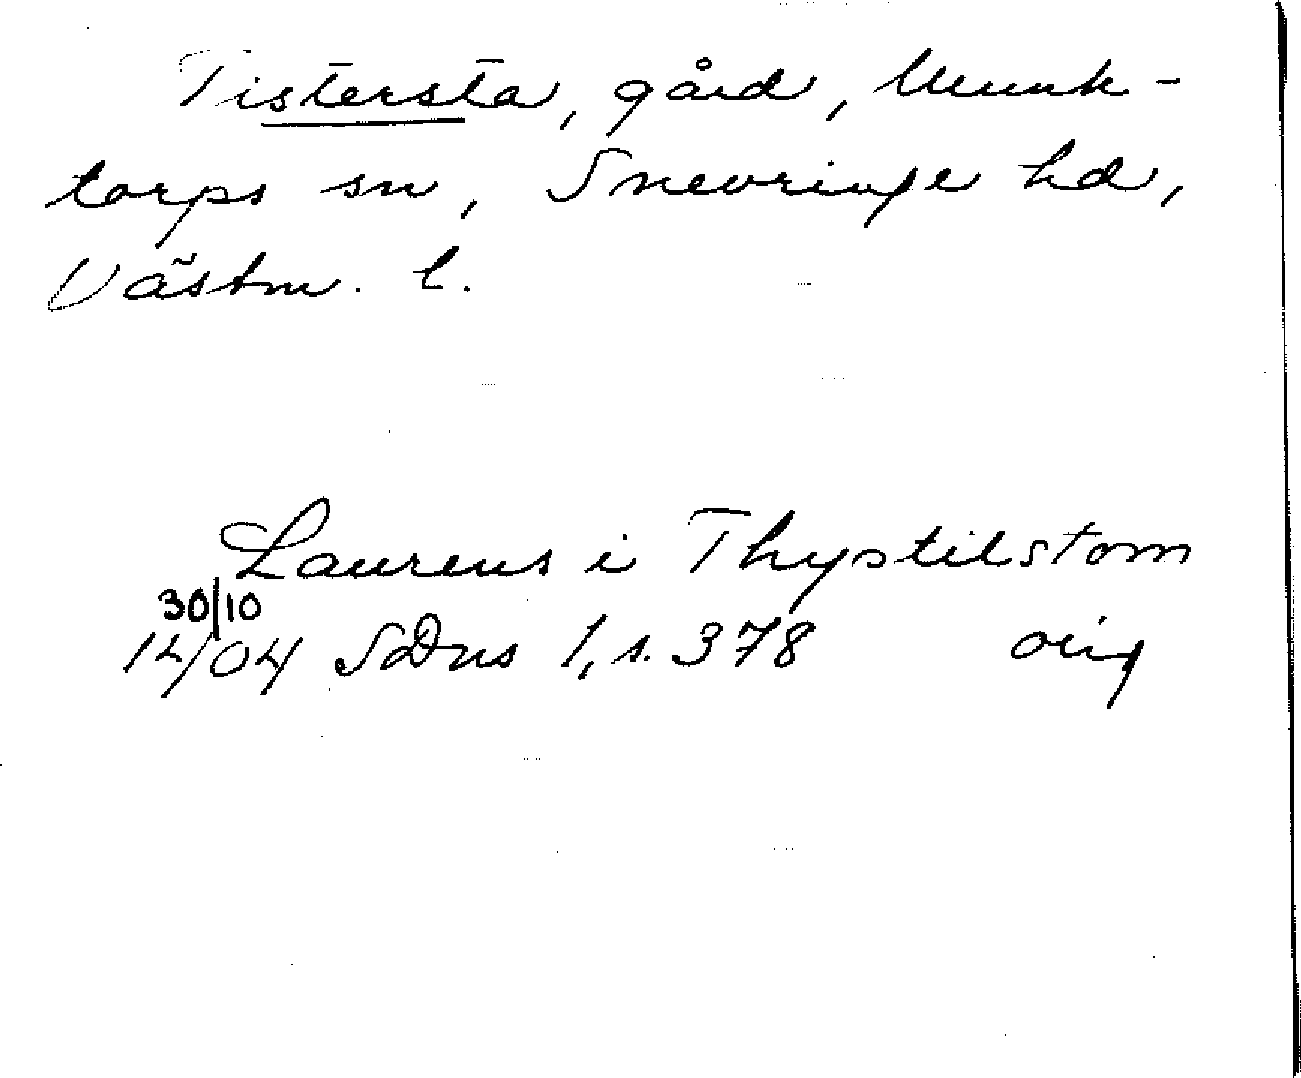 Tistersta, gård, Munk-
torps sn, Snevringe hd,
Västm. l.
Laurens i Thystilstom
30/10
14/04 SDns 1, s. 378 orig